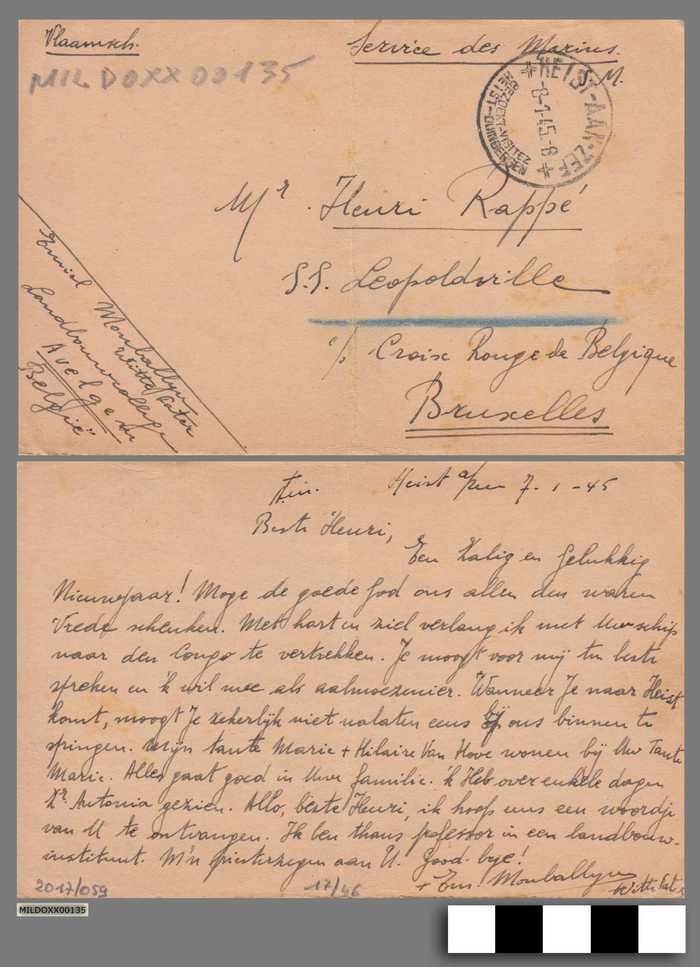 Vlaamsch.
Service des Marins.
M.
MILDOXX00135
HEIST-AAN-ZEE
8-1-45-8
BEZOEKT-VISITEZ
HEIST-DUINBERGEN
Mr. Henri Rappé
S.S. Leopoldville
c/o Croix Rouge de Belgique
Bruxelles
Emiel Monballyu
Witte Pater
Landbouwcollege
Avelgem
België
Heist a/zee 7-1-45
Beste Henri,
Een Zalig en Gelukkig
Nieuwjaar! Moge de goede God ons allen den waren
Vrede schenken. Met hart en ziel verlang ik met Uw schip
naar den Congo te vertrekken. Je moogt voor mij ten beste
spreken en 'k wil mee als aalmoezenier. Wanneer Je naar Heist
komt, moogt Je zekerlijk niet nalaten eens bij ons binnen te
springen. Mijn tante Marie + Hilaire Van Hove wonen bij Uw Tante
Marie. Alles gaat goed in Uwe familie. 'k Heb over enkele dagen
Zr Antonia gezien. Allo, beste Henri, ik hoop eens een woordje
van U te ontvangen. Ik ben thans professor in een landbouw-
instituut. M'n priesterzegen aan U. Good-bye!
+ Em. Monballyu
Witte Pater
2017/059
17/46
MILDOXX00135